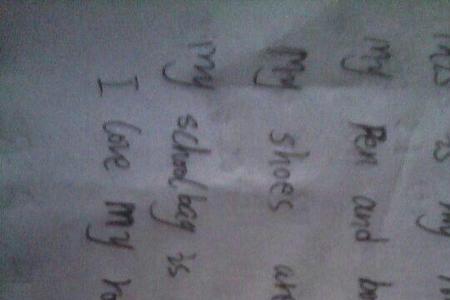 is my
my Pen and
My shoes
my school bag is
I love my